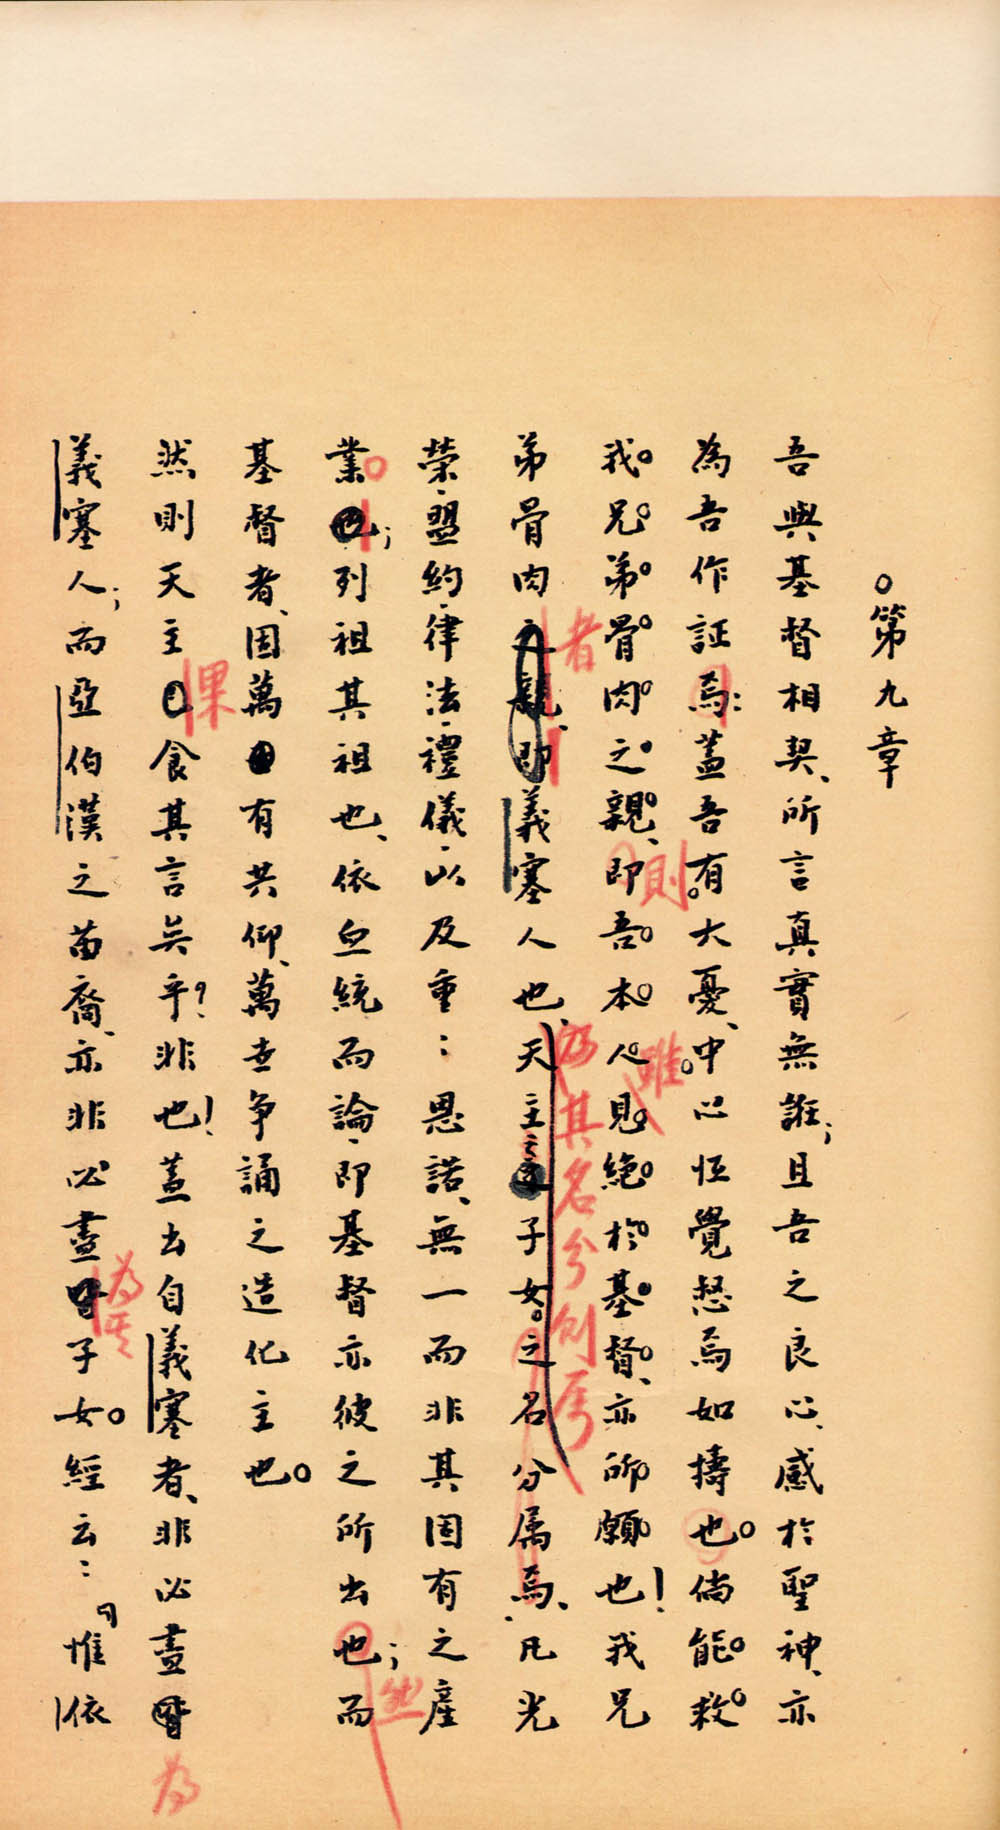 。第九章
吾與基督相契、所言真實無誑；且吾之良心、感於聖神、亦
為吾作証焉：蓋吾有大憂、中心恆覺愁焉如擣也。倘能救
我兄弟骨肉之親、即吾本人見絕於基督、亦所願也！我兄
弟骨肉之親、即義塞人也、天主之子女。之名分屬焉、凡光
榮、盟約、律法、禮儀、以及重重恩諾、無一而非其固有之產
業也；列祖其祖也、依血統而論、即基督亦彼之所出也；而
基督者、固萬有共仰、萬世爭誦之造化主也。
然則天主食其言矣乎？非也！蓋出自義塞者、非必盡
義塞人；而亞伯漢之苗裔、亦非必盡子女。經云：「惟依
者
則
雖
為其名分創序
課
然
為其
為